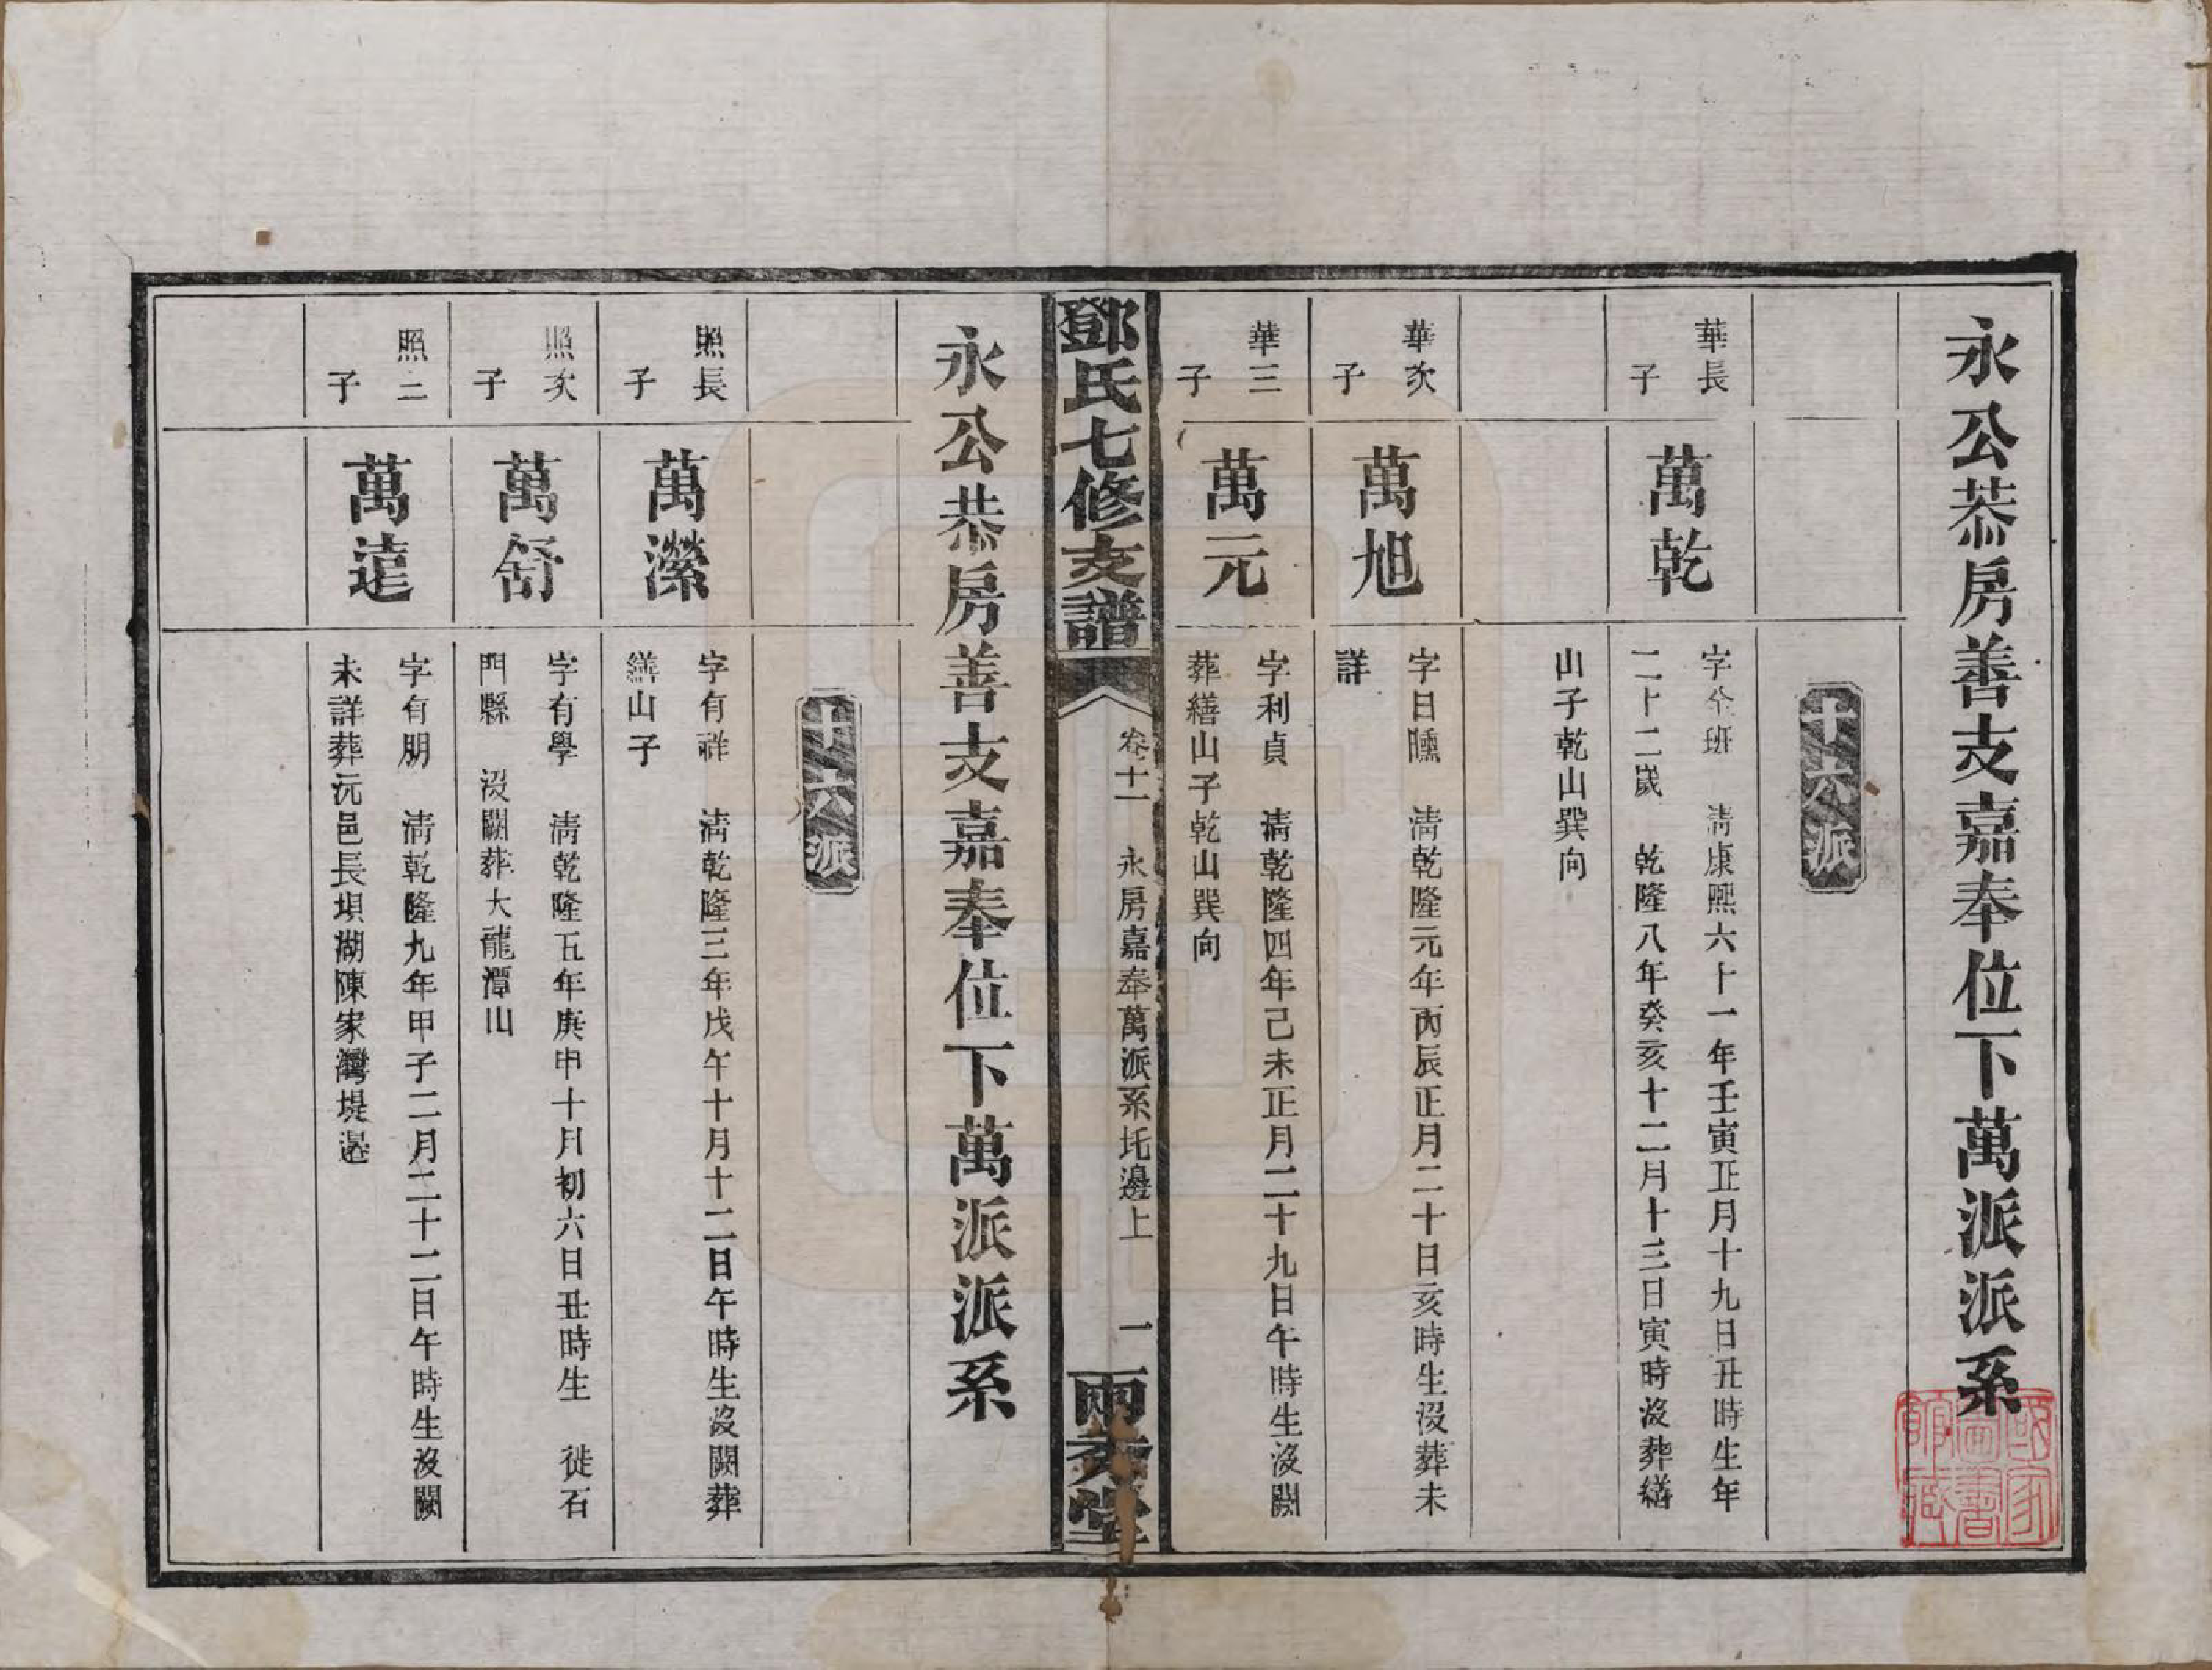 永公恭房善支嘉奉位下萬派派系
十六派
華長子
萬乾
字全班　清康熙六十一年壬寅正月十九日丑時生年
二十二歲　乾隆八年癸亥十二月十三日寅時沒葬繕
山子乾山巽向
華次子
萬旭
字日曛　清乾隆元年丙辰正月二十日亥時生沒葬未
詳
華三子
萬元
字利貞　清乾隆四年己未正月二十九日午時生沒闕
葬繕山子乾山巽向
鄧氏七修支譜
卷十一　永房嘉奉萬派系圫邊上　一
兩秀堂
永公恭房善支嘉奉位下萬派派系
十六派
照長子
萬濴
字有祥　清乾隆三年戊午十月十二日午時生沒闕葬
繕山子
照次子
萬舒
字有學　清乾隆五年庚申十月初六日丑時生　徙石
門縣　沒闕葬大龍潭山
照三子
萬遠
字有朋　清乾隆九年甲子二月二十二日午時生沒闕
未詳葬沅邑長垻湖陳家灣堤邊
國家圖書館藏